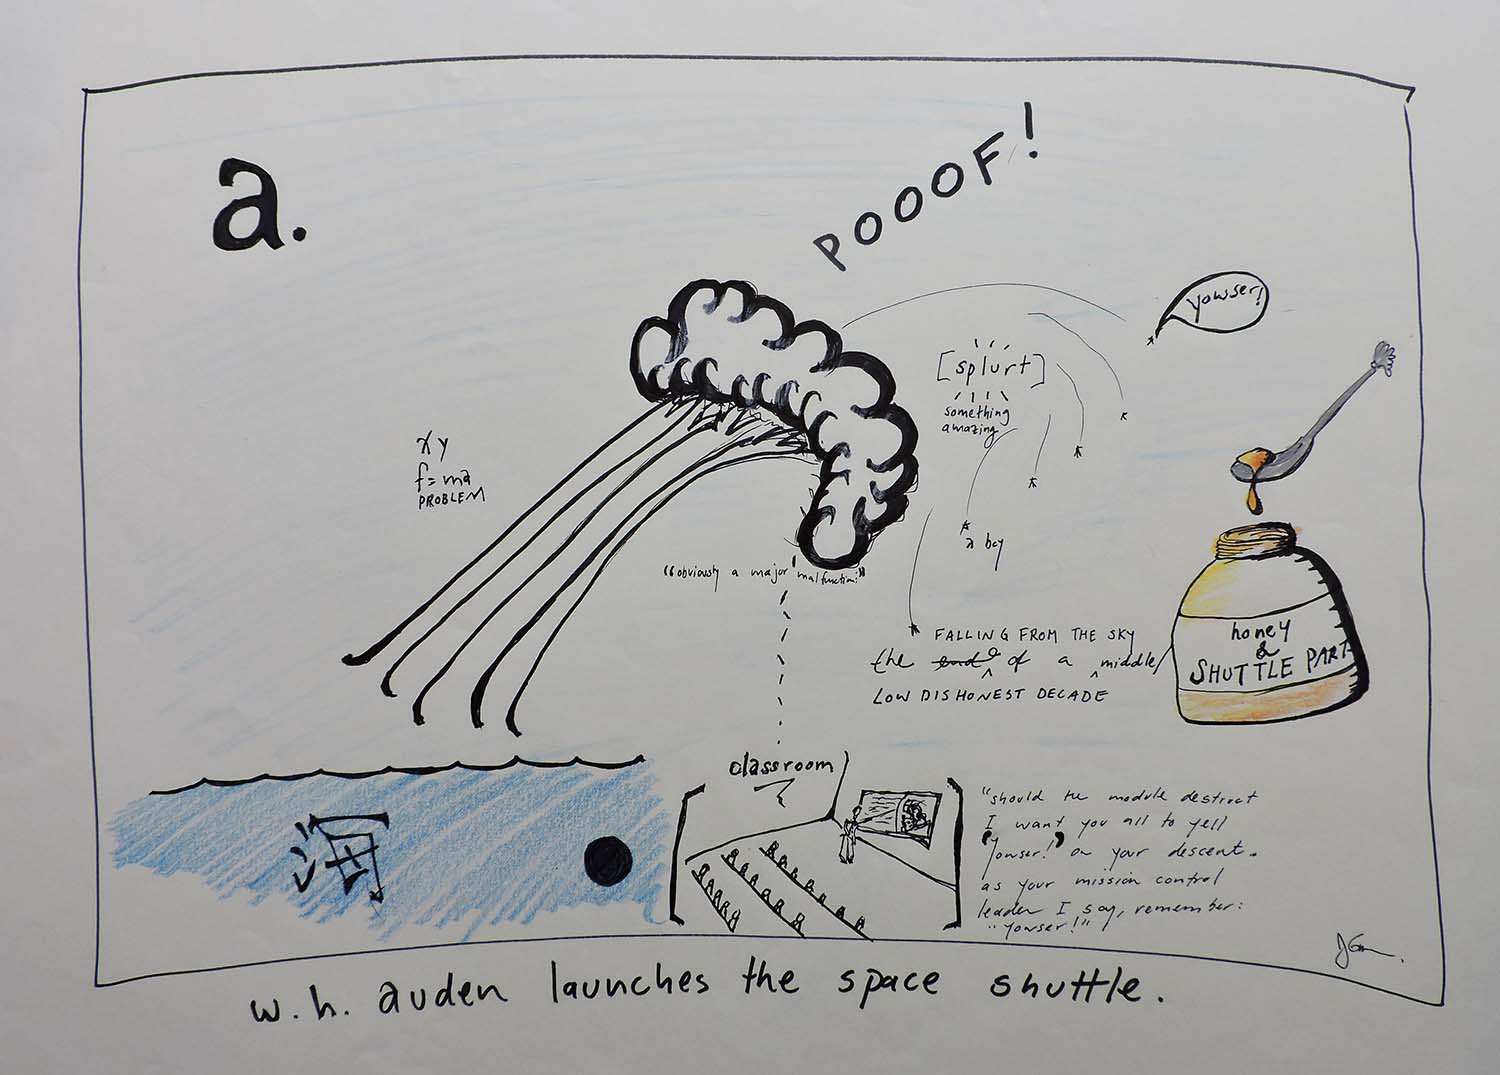 a.
POOOF!
yowser!
[splurt]
something
amazing
xy
f=ma
PROBLEM
a boy
"obviously a major malfunction"
FALLING FROM THE SKY
the end of a middle
LOW DISHONEST DECADE
honey
&
SHUTTLE PART
海
classroom
"should the module destruct
I want you all to yell
"Yowser!" on your descent.
as your mission control
leader I say, remember:
"Yowser!"
w.h. auden launches the space shuttle.